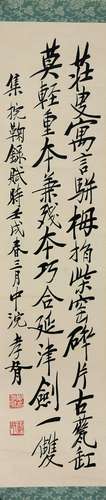 莊叟寓言駢拇指柴窰碎片古瓷缸
莫輕重本兼殘本巧合延津劍一雙
集掞鞠錄賦時壬戌春三月中浣孝胥